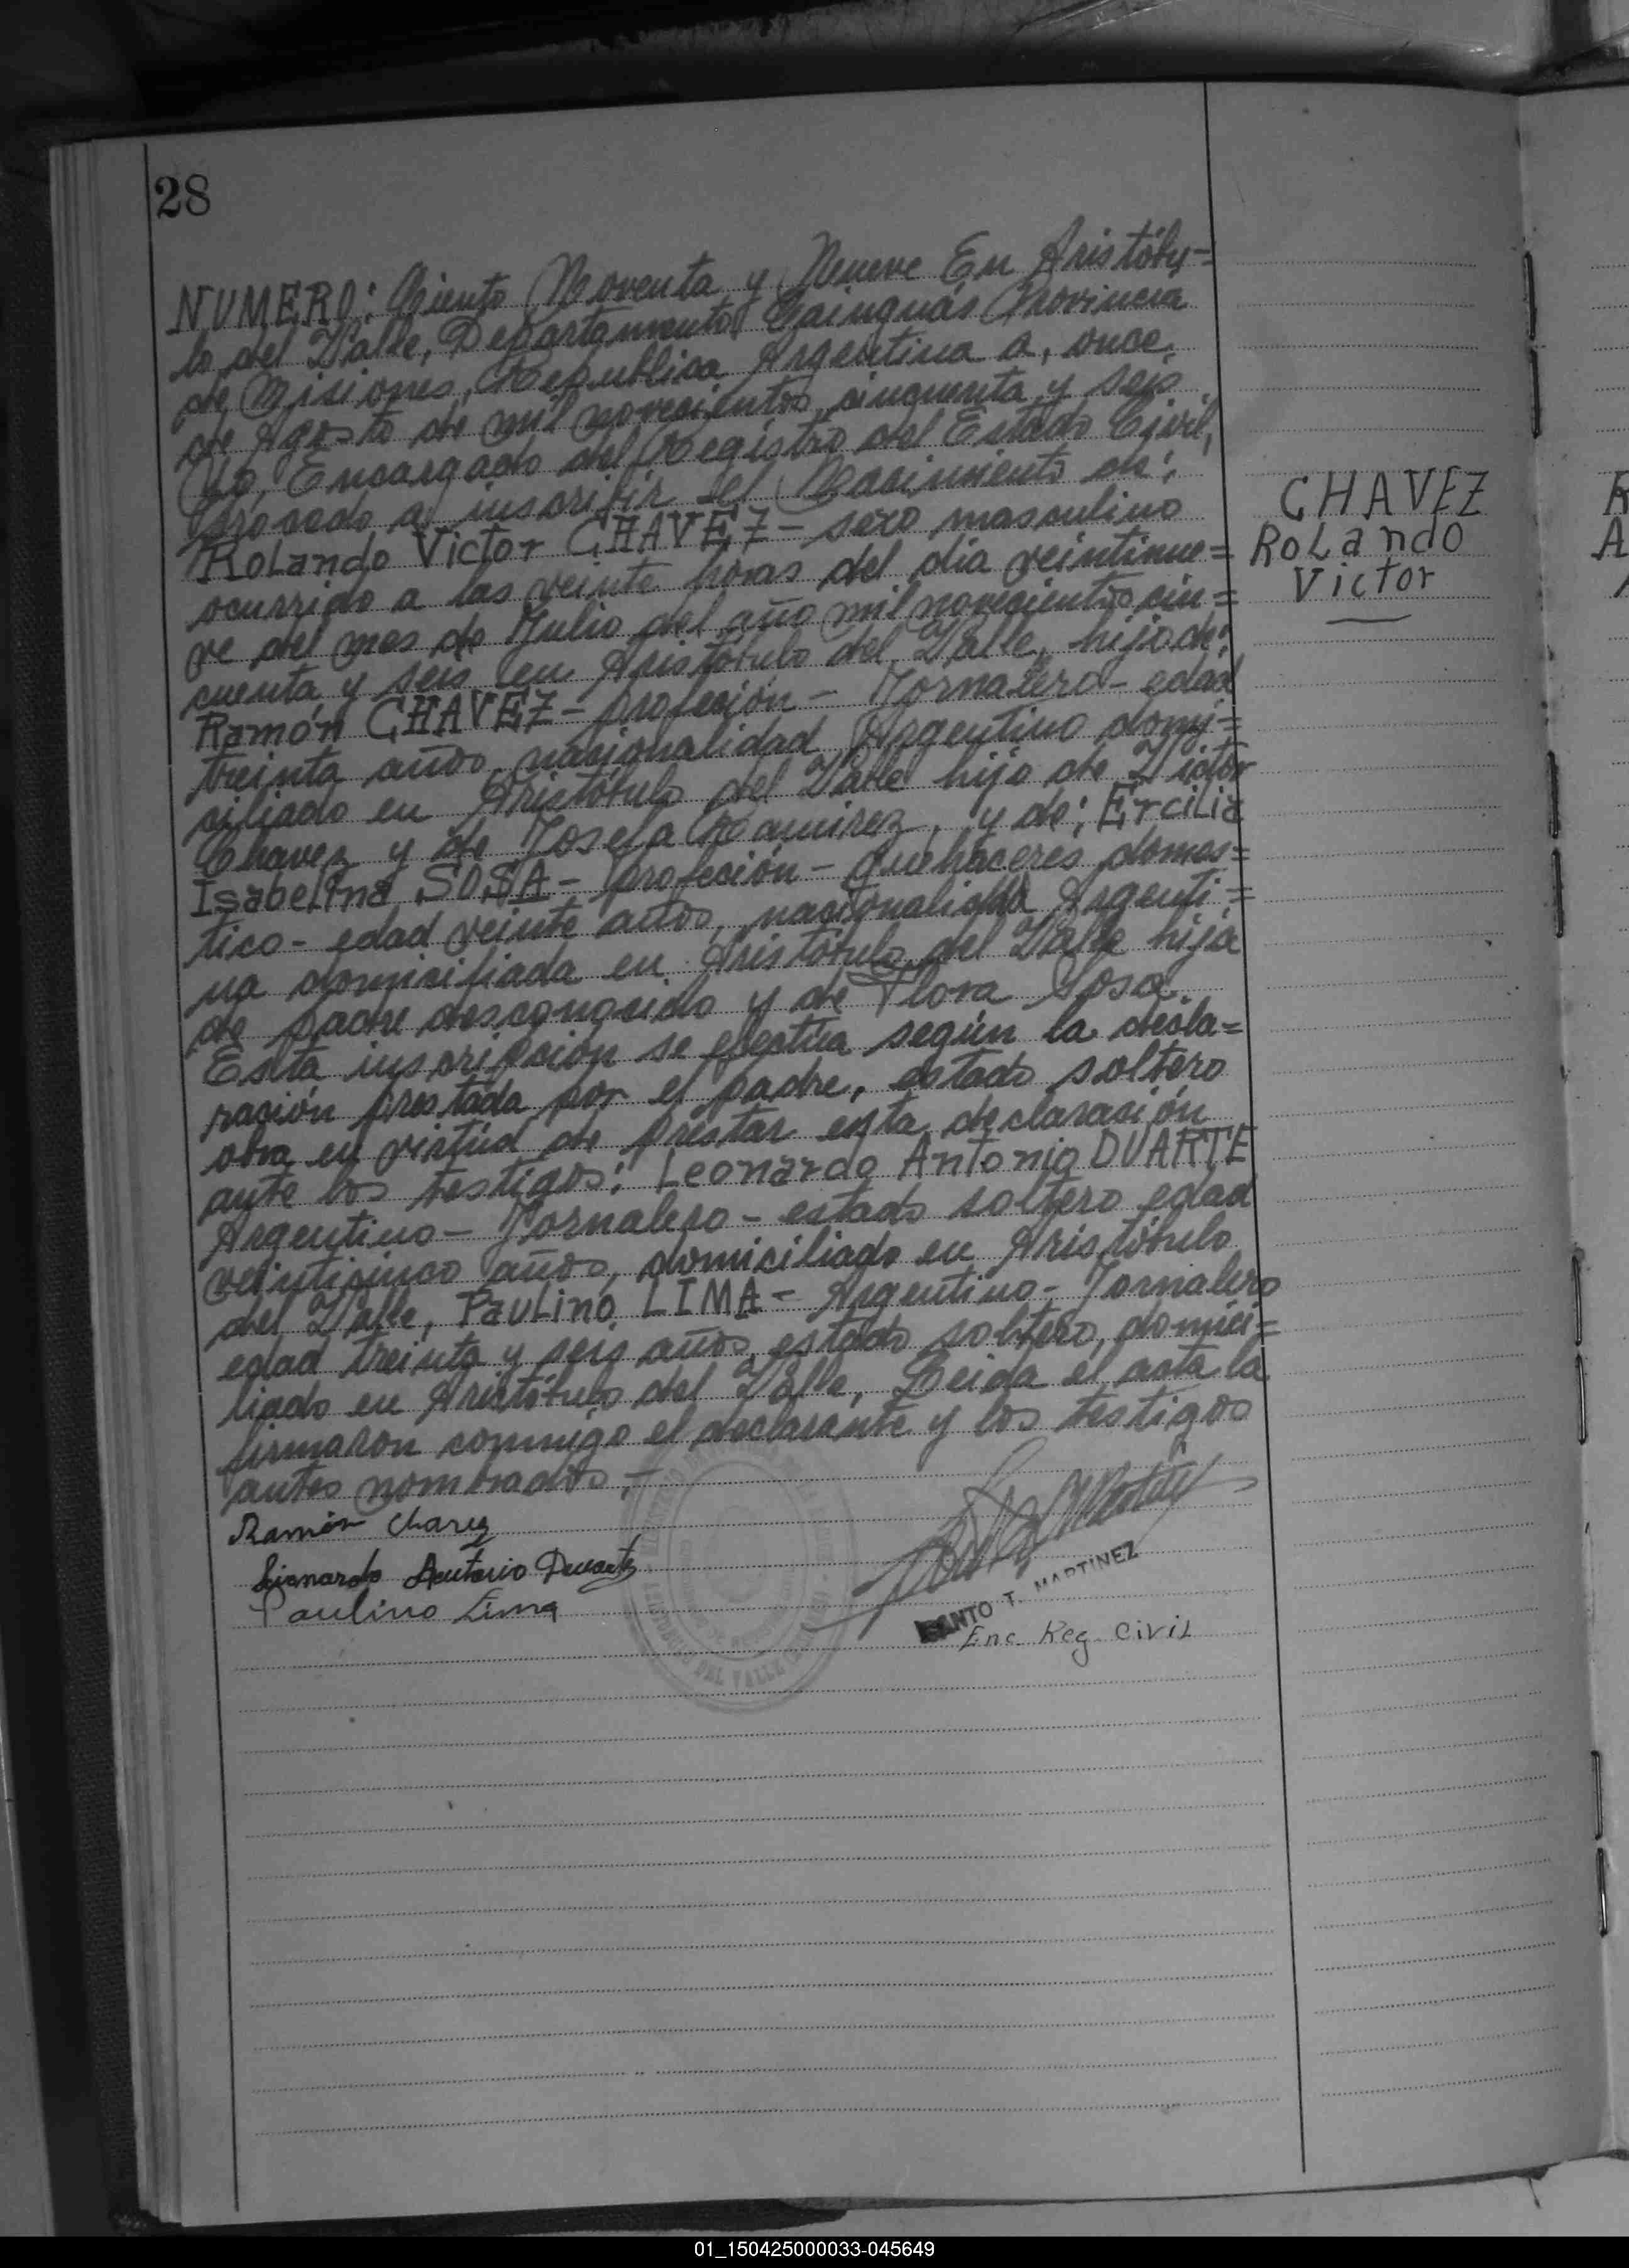 28
NUMERO: Ciento Noventa y Nueve En Aristóbu=
lo del Valle, Departamento Cainguás Provincia
de Misiones, Republica Argentina a, once,
de Agosto de mil novecientos cinquenta y seis
Yo, Encargado del Registro del Estado Civil,
Procedo a inscribir el Nacimiento de:
RoLando Victor CHAVEZ - sexo masculino
ocurrido a las veinte horas del dia veintinue=
ve del mes de Julio del año mil novecientos cin=
cuenta y seis en Aristóbulo del Valle, hijo de:
Ramón CHAVEZ - profeción - Jornalero - edad
treinta años, nacionalidad Argentino domi=
ciliado en Aristóbulo del Valle hijo de Victor
Chavez y de Josefa Ramirez, y de: ErciLia
IsabeLina SOSA - profeción - quehaceres domes=
tico - edad veinte años, nacionalidad Argenti=
na domiciliada en Aristóbulo del Valle hija
de padre desconocido y de Flora Sosa.
Esta inscripción se efectúa según la decla=
ración prestada por el padre, estado soltero
obra en virtúd de prestar esta declaración
ante los testigos: Leonardo Antonio DUARTE
Argentino - Jornalero - estado soltero edad
veinticinco años, domiciliado en Aristóbulo
del Valle, PauLino LIMA - Argentino - Jornalero
edad treinta y seis años, estado soltero, domici=
liado en Aristóbulo del Valle, Leida el acta la
firmaron conmigo el declarante y los testigos
antes nombrados, -
Ramón Chavez
Lionardo Antonio Duarte
Paulino Lima
SANTO T. MARTINEZ
Enc. Reg. CiviL
CHAVEZ
RoLando
Victor
01_150425000033-045649